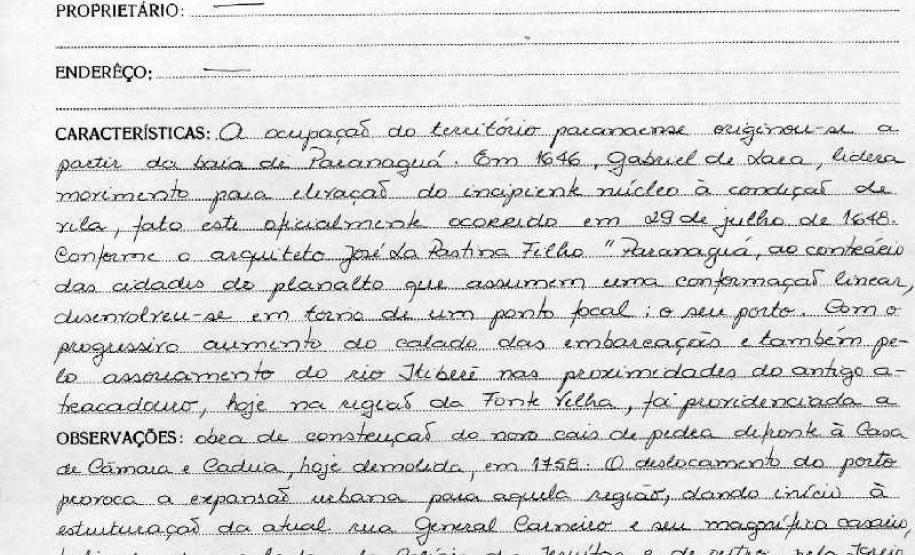 PROPRIETÁRIO:
ENDERÊÇO:
CARACTERÍSTICAS: A ocupação do território paranaense originou-se a
partir da baía de Paranaguá. Em 1646, Gabriel de Lara, lidera
movimento para elevação do incipiente núcleo à condição de
vila, fato este oficialmente ocorrido em 29 de julho de 1648.
Conforme o arquiteto José La Pastina Filho "Paranaguá, ao contrário
das cidades do planalto que assumem uma conformação linear,
desenvolveu-se em torno de um ponto focal: o seu porto. Com o
progressivo aumento do calado das embarcações e também pe-
lo assoreamento do rio Itiberê nas proximidades do antigo a-
tracadouro, hoje na região da Fonte Velha, foi providenciada a
OBSERVAÇÕES: obra de construção do novo cais de pedra defronte à Casa
de Câmara e Cadeia, hoje demolida, em 1758. O deslocamento do porto
provoca a expansão urbana para aquela região, dando início à
estruturação da atual rua General Carneiro e seu magnífico casario,